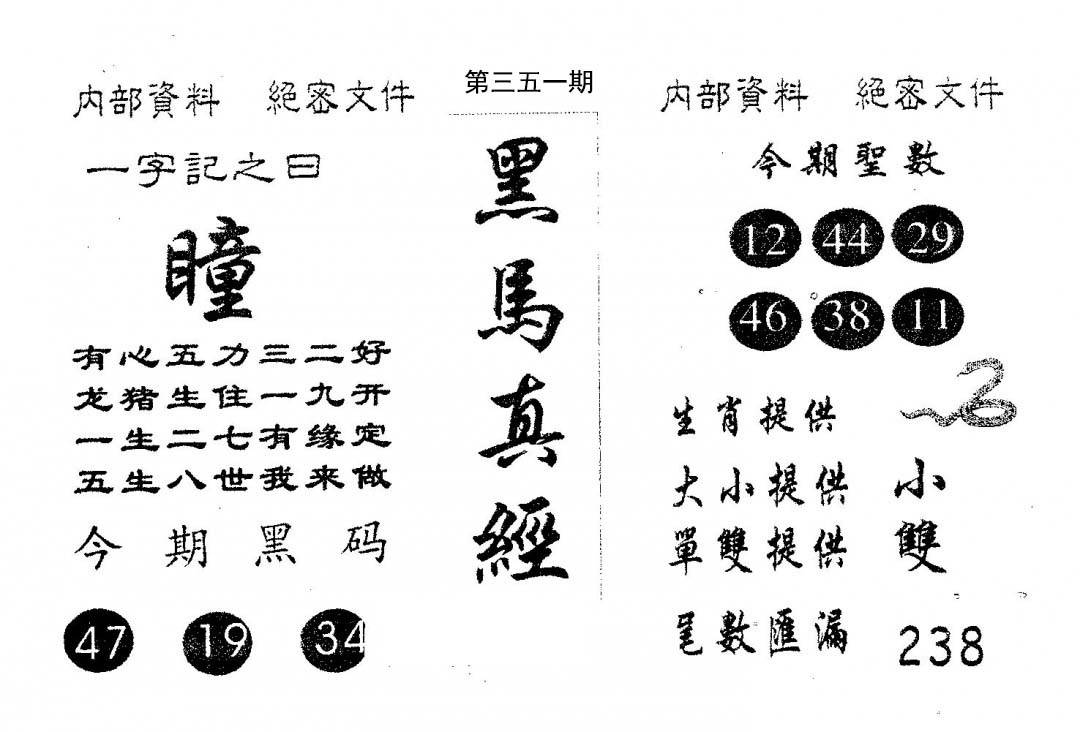 第三五一期
内部資料 絕密文件
一字記之曰
瞳
有心五力三二好
龙猪生住一九开
一生二七有缘定
五生八世我来做
今期黑码
47 19 34
黑馬真經
内部資料 絕密文件
今期聖數
12 44 29
46 38 11
生肖提供
大小提供 小
單雙提供 雙
尾數匯漏 238